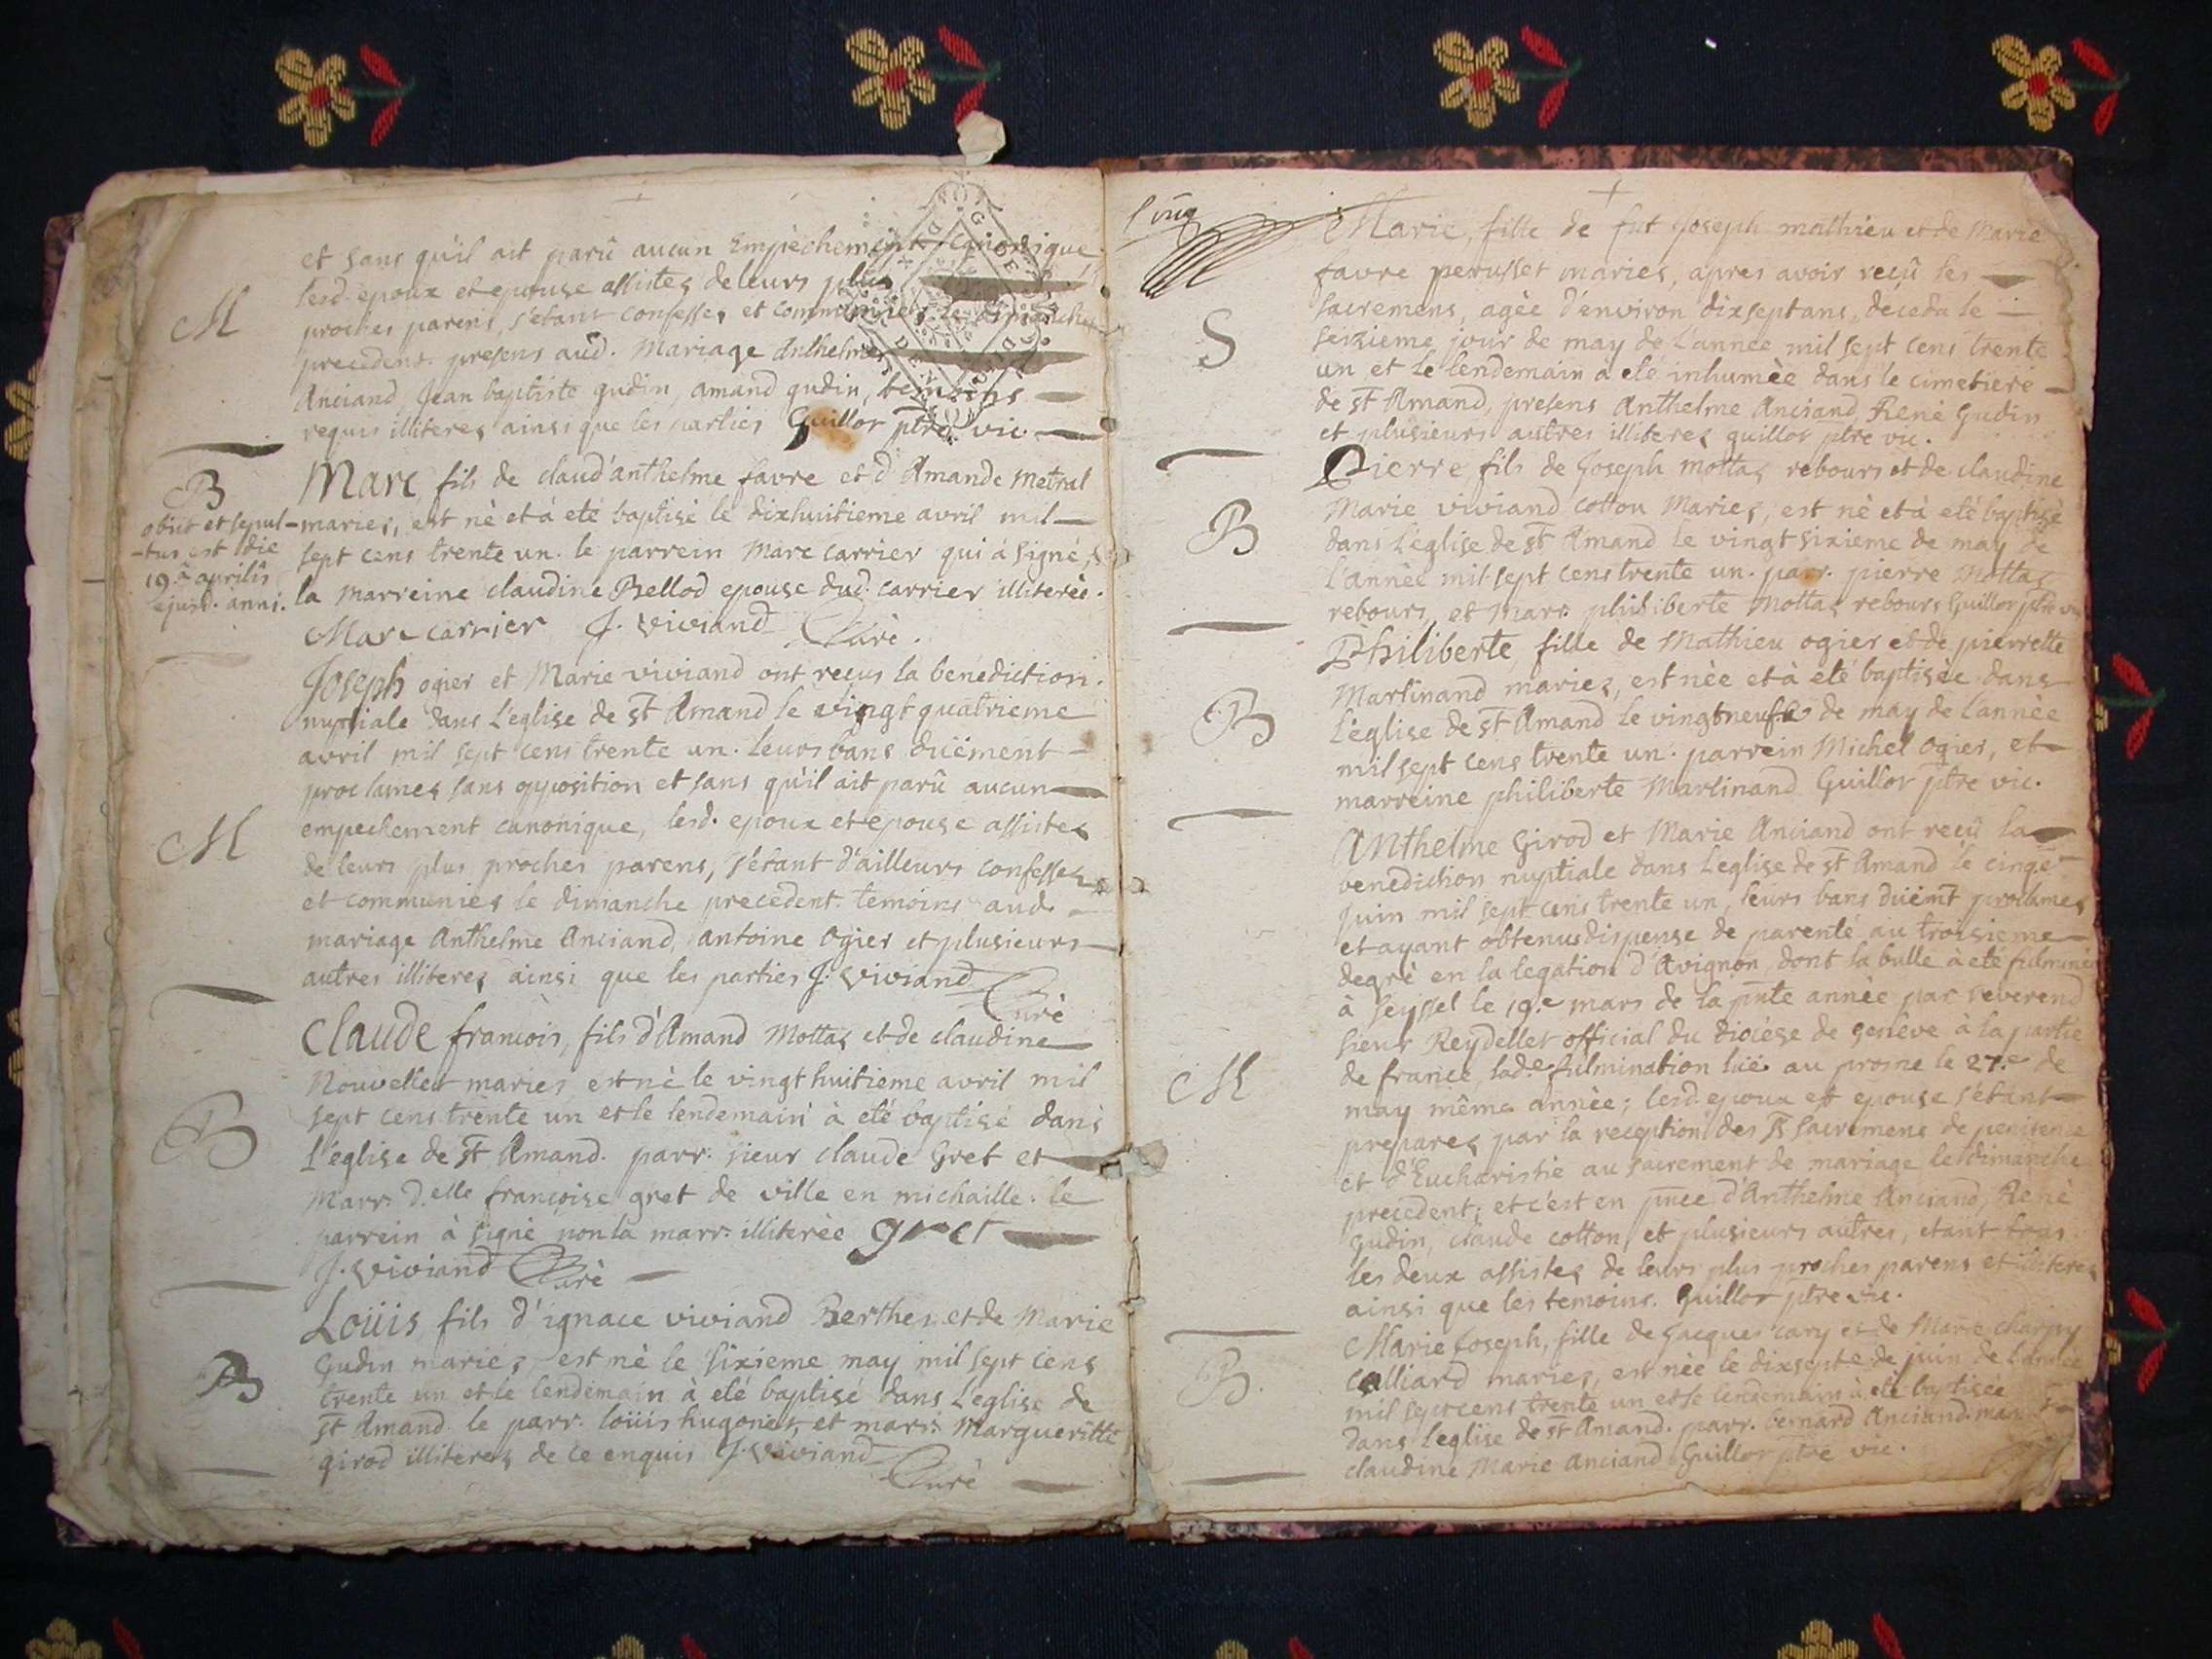 et sans qu'il ait parû aucun Empêchement canonique
lesd. epoux et epouse assistez de leurs plus
M
proches parens, s'etant confessez et communiez le dimanche
precedent. presens aud. Mariage Anthelme
Anciand, Jean baptiste gudin, amand gudin, temoins
requis illiterez ainsi que les parties Guillot ptre vic.
B
obiit et sepul-
-tus est die
19â aprilis
ejusd. anni.
Marc fils de claud'anthelme favre et d'Amande metral
mariez, est nè et à eté baptisé le dixhuitieme avril mil
sept cens trente un. le parrein Marc carrier qui à signé,
la marreine claudine Bellod epouse dud. carrier illiterée.
Marc carrier J. Viviand Curè.
Joseph ogier et Marie viviand ont reçus la benediction
nuptiale dans L'eglise de st Amand le vingt quatrieme
avril mil sept cens trente un. leurs bans duëment
proclamez sans opposition et sans qu'il ait parû aucun
M
empechement canonique, lesd. epoux et epouse assistez
de leurs plus proches parens, s'étant d'ailleurs confessez
et communiez le dimanche precedent. temoins aud.
mariage Anthelme Anciand, Antoine Ogier et plusieurs
autres illiterez ainsi que les parties J. Viviand
Curè
Claude francois, fils d'Amand Mottaz et de claudine
Nouvellet mariez est nè le vingt huitieme avril mil
B
sept cens trente un et le lendemain à eté baptisé dans
L'église de st Amand. parr. sieur claude Gret et
Marr. D.elle francoise gret de ville en michaille. le
parrein à signé non la marr. illiterée gret
J. Viviand Curè
Loüis, fils d'ignace viviand Berthet et de Marie
B
Gudin mariez, est nè le sixieme may mil sept cens
trente un et le lendemain à eté baptisé dans L'eglise de
st Amand. le parr. loüis hugonet, et marr. Margueritte
girod illiterez de ce enquis J. Viviand
Curè
Marie, fille de fut Joseph mathieu et de Marie
favre perusset mariez, apres avoir reçû les
S
sacremens, agèe d'environ dixsept ans, deceda le
seizieme jour de may de L'annèe mil sept cens trente
un et le lendemain à eté inhumèe dans le cimetiere
de st Amand, presens Anthelme Anciand, Renè Gudin
et plusieurs autres illiterez guillot ptre vic.
Pierre fils de Joseph mottaz rebours et de claudine
B
Marie viviand cotton Mariez, est nè et à eté baptisè
dans L'eglise de st Amand le vingt sixieme de may de
L'annèe mil sept cens trente un. parr. pierre Mottaz
rebours, et marr. philiberte Mottaz rebours Guillot ptre vic
Philiberte, fille de Mathieu ogier et de pierrette
B
Martinand mariez, est nèe et à eté baptisèe dans
L'eglise de st Amand le vingt neuf de may de l'annèe
mil sept cens trente un. parrein Michel Ogier, et
marreine philiberte Martinand Guillot ptre vic.
Anthelme Girod et Marie Anciand ont reçû la
benediction nuptiale dans L'eglise de st Amand le cinq.e
Juin mil sept cens trente un, leurs bans duëmt proclamez
et ayant obtenus dispense de parenté au troisieme
degrè en la legation d'Avignon, dont la bulle à eté fulminé
à seyssel le 19.e mars de la pnte annèe par
sieur Reydellet official du diocèse de genève à la partie
M
de france, lad.e fulmination lüe au prosne le 27.e de
may même annèe; lesd. epoux et epouse s'étant
preparez par la reception des sts sacremens de penitence
et d'Eucharistie au sacrement de mariage le dimanche
precedent; et c'est en pnce d'Anthelme Anciand, Renè
Gudin, claude cotton, et plusieurs autres, etant tous
les deux assistez de leurs plus proches parens et illiterez
ainsi que les temoins. Guillot ptre vic.
Marie Joseph, fille de Jacques cary et de Marie charpy
B.
calliard mariez, est nèe le dixsept.e de juin de l'annèe
mil sept cens trente un et le lendemain à eté baptisée
dans l'eglise de st Amand. parr. bernard Anciand. marr.
claudine Marie Anciand Guillot ptre vic.